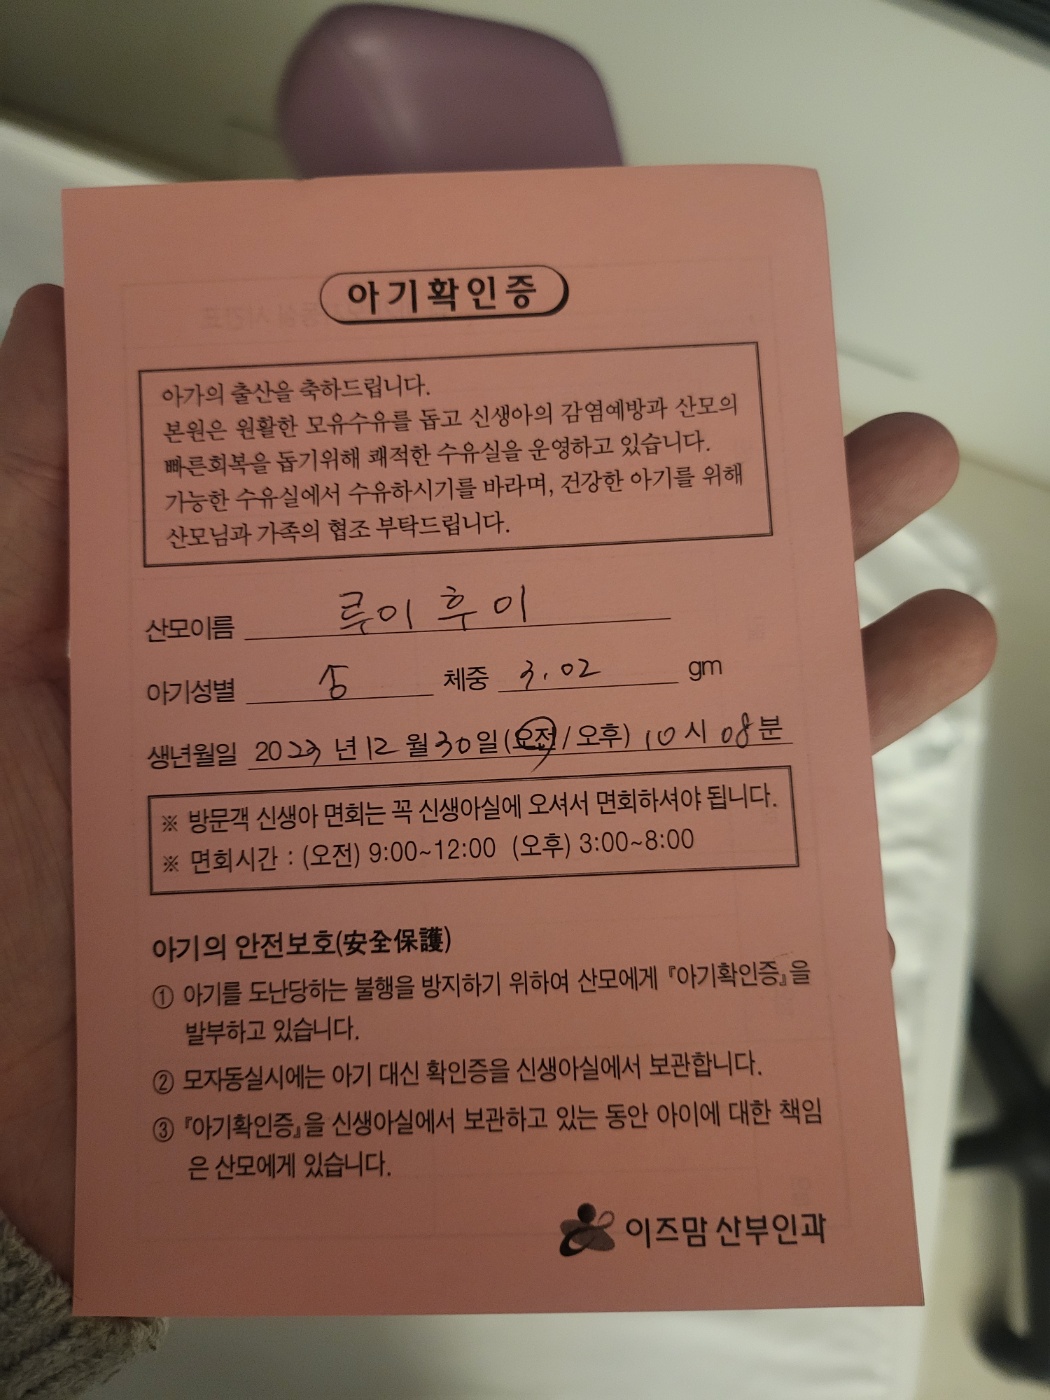 아기확인증
아가의 출산을 축하드립니다.
본원은 원활한 모유수유를 돕고 신생아의 감염예방과 산모의
빠른회복을 돕기위해 쾌적한 수유실을 운영하고 있습니다.
가능한 수유실에서 수유하시기를 바라며, 건강한 아기를 위해
산모님과 가족의 협조 부탁드립니다.
산모이름 루이후이
아기성별 체중 3.02 gm
생년월일 2023년 12월 30일 (오전/오후) 10시 08분
※ 방문객 신생아 면회는 꼭 신생아실에 오셔서 면회하셔야 됩니다.
※ 면회시간 : (오전) 9:00~12:00 (오후) 3:00~8:00
아기의 안전보호(安全保護)
① 아기를 도난당하는 불행을 방지하기 위하여 산모에게 『아기확인증』을
발부하고 있습니다.
② 모자동실시에는 아기 대신 확인증을 신생아실에서 보관합니다.
③ 『아기확인증』을 신생아실에서 보관하고 있는 동안 아이에 대한 책임
은 산모에게 있습니다.
이즈맘 산부인과